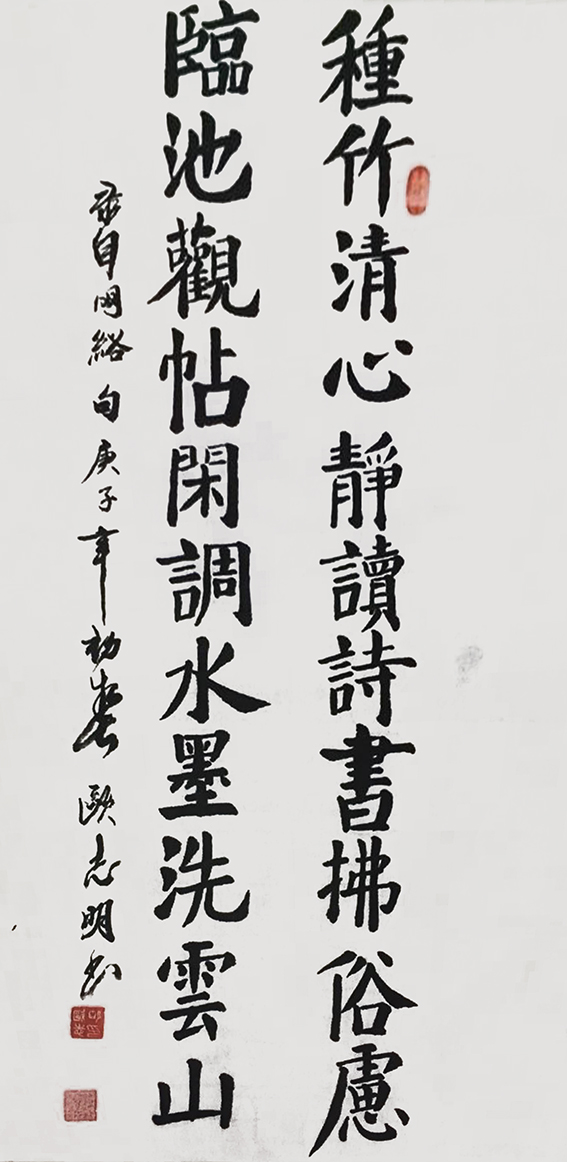 種竹清心靜讀詩書拂俗慮
臨池觀帖閑調水墨洗雲山
录自网絡句庚子年初春歐志明书